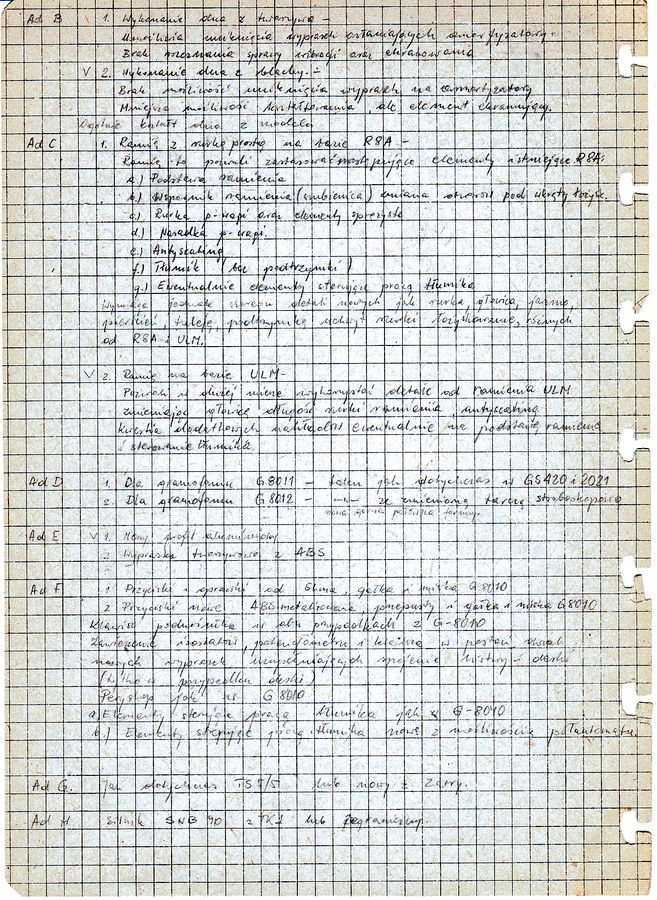 Ad B 1. Wykonanie dna z tworzywa –
Umożliwia uniknięcia wyprasek ustawiających amortyzatory.
Brak rozeznania sprawy wibracji oraz ekranowania
V 2. Wykonanie dna z blachy. –
Brak możliwości uniknięcia wyprasek na amortyzatory
Mniejsza możliwość kształtowania, ale element ekranujący.
kształt dna z modelu
Ad C 1. Ramię z rurką prostą na bazie R8A –
Ramię to pozwoli zastosować następujące elementy istniejące R8A:
a.) Podstawa ramienia
b.) Wspornik ramienia (szubienica) zmiana otworów pod wkręty łożysk.
c.) Rurka p-wagi oraz elementy sprężyste
d.) Nasadka p-wagi.
e.) Antyscating
f.) Tłumik (bez podtrzymki)
g.) Ewentualnie elementy sterujące pracą tłumika
Wymaga jednak szeregu detali nowych jak rurka, głowica, jarzmo,
pierścień, tuleja, podtrzymka uchwyt rurki łożyskowanie, różnych
od R8A i ULM.
V 2. Ramię na bazie ULM –
Pozwoli w dużej mierze wykorzystać detale od ramienia ULM
zmieniając głowicę długość rurki ramienia, antyscating
Kwestia dodatkowych nakładów ewentualnie na podstawę ramienia
i sterowanie tłumika
Ad D 1. Dla gramofonu G 8011 – talerz jak dotychczas w GS 420 i 2021
2. Dla gramofonu G 8012 – -"- ze zmienioną tarczą stroboskopową
nowa górna połówka formy.
Ad E V 1. Nowy profil aluminiowy
2 Wypraska tworzywowa z ABS
Ad F 1 Przyciski i oprawki od gałka i miska G 8010
2 Przyciski nowe ABS metalizowane, przepusty i gałka i miska G 8010
Klawisz podnośnika w obu przypadkach z G-8010
Zawieszenie isostatów, potencjometru i klawisza w postaci dwóch
nowych wyprasek uzupełniających spojenie listwy i deski
(tylko w przypadku deski)
Peryskop jak w G 8010
a) Elementy sterujące pracą tłumika jak w G-8010
b.) Elementy sterujące pracą tłumika nowe z możliwością półautomatu.
Ad G. Jak dotychczas TS 5/5 lub nowy z Zatry.
Ad H. Silnik SNB 90 z TK1 lub zegramicznp.